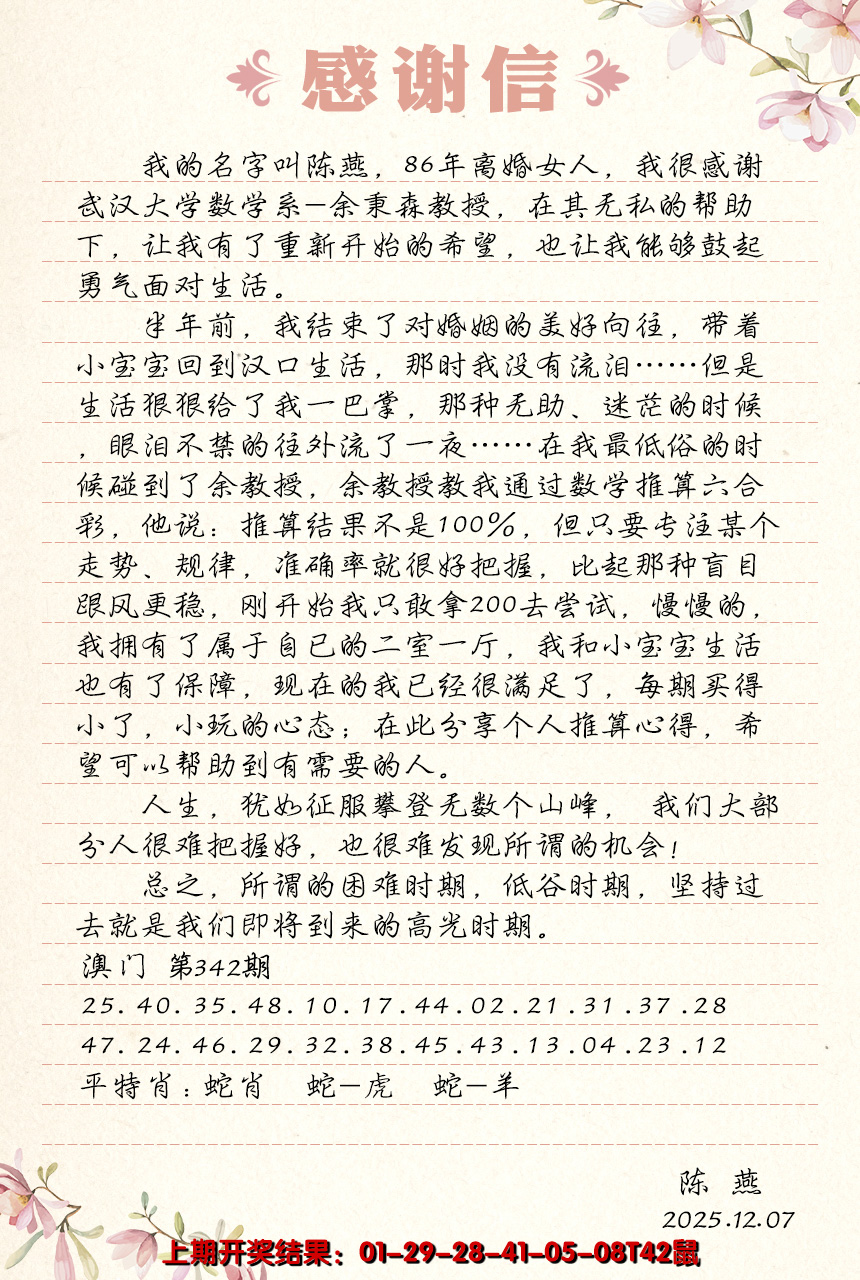 感谢信
我的名字叫陈燕，86年离婚女人，我很感谢
武汉大学数学系-余秉森教授，在其无私的帮助
下，让我有了重新开始的希望，也让我能够鼓起
勇气面对生活。
半年前，我结束了对婚姻的美好向往，带着
小宝宝回到汉口生活，那时我没有流泪……但是
生活狠狠给了我一巴掌，那种无助、迷茫的时候
，眼泪不禁的往外流了一夜……在我最低俗的时
候碰到了余教授，余教授教我通过数学推算六合
彩，他说：推算结果不是100%，但只要专注某个
走势、规律，准确率就很好把握，比起那种盲目
跟风更稳，刚开始我只敢拿200去尝试，慢慢的，
我拥有了属于自已的二室一厅，我和小宝宝生活
也有了保障，现在的我已经很满足了，每期买得
小了，小玩的心态；在此分享个人推算心得，希
望可以帮助到有需要的人。
人生，犹如征服攀登无数个山峰， 我们大部
分人很难把握好，也很难发现所谓的机会！
总之，所谓的困难时期，低谷时期，坚持过
去就是我们即将到来的高光时期。
澳门 第342期
25.40.35.48.10.17.44.02.21.31.37.28
47.24.46.29.32.38.45.43.13.04.23.12
平特肖：蛇肖 蛇-虎 蛇-羊
陈 燕
2025.12.07
上期开奖结果：01-29-28-41-05-08T42鼠